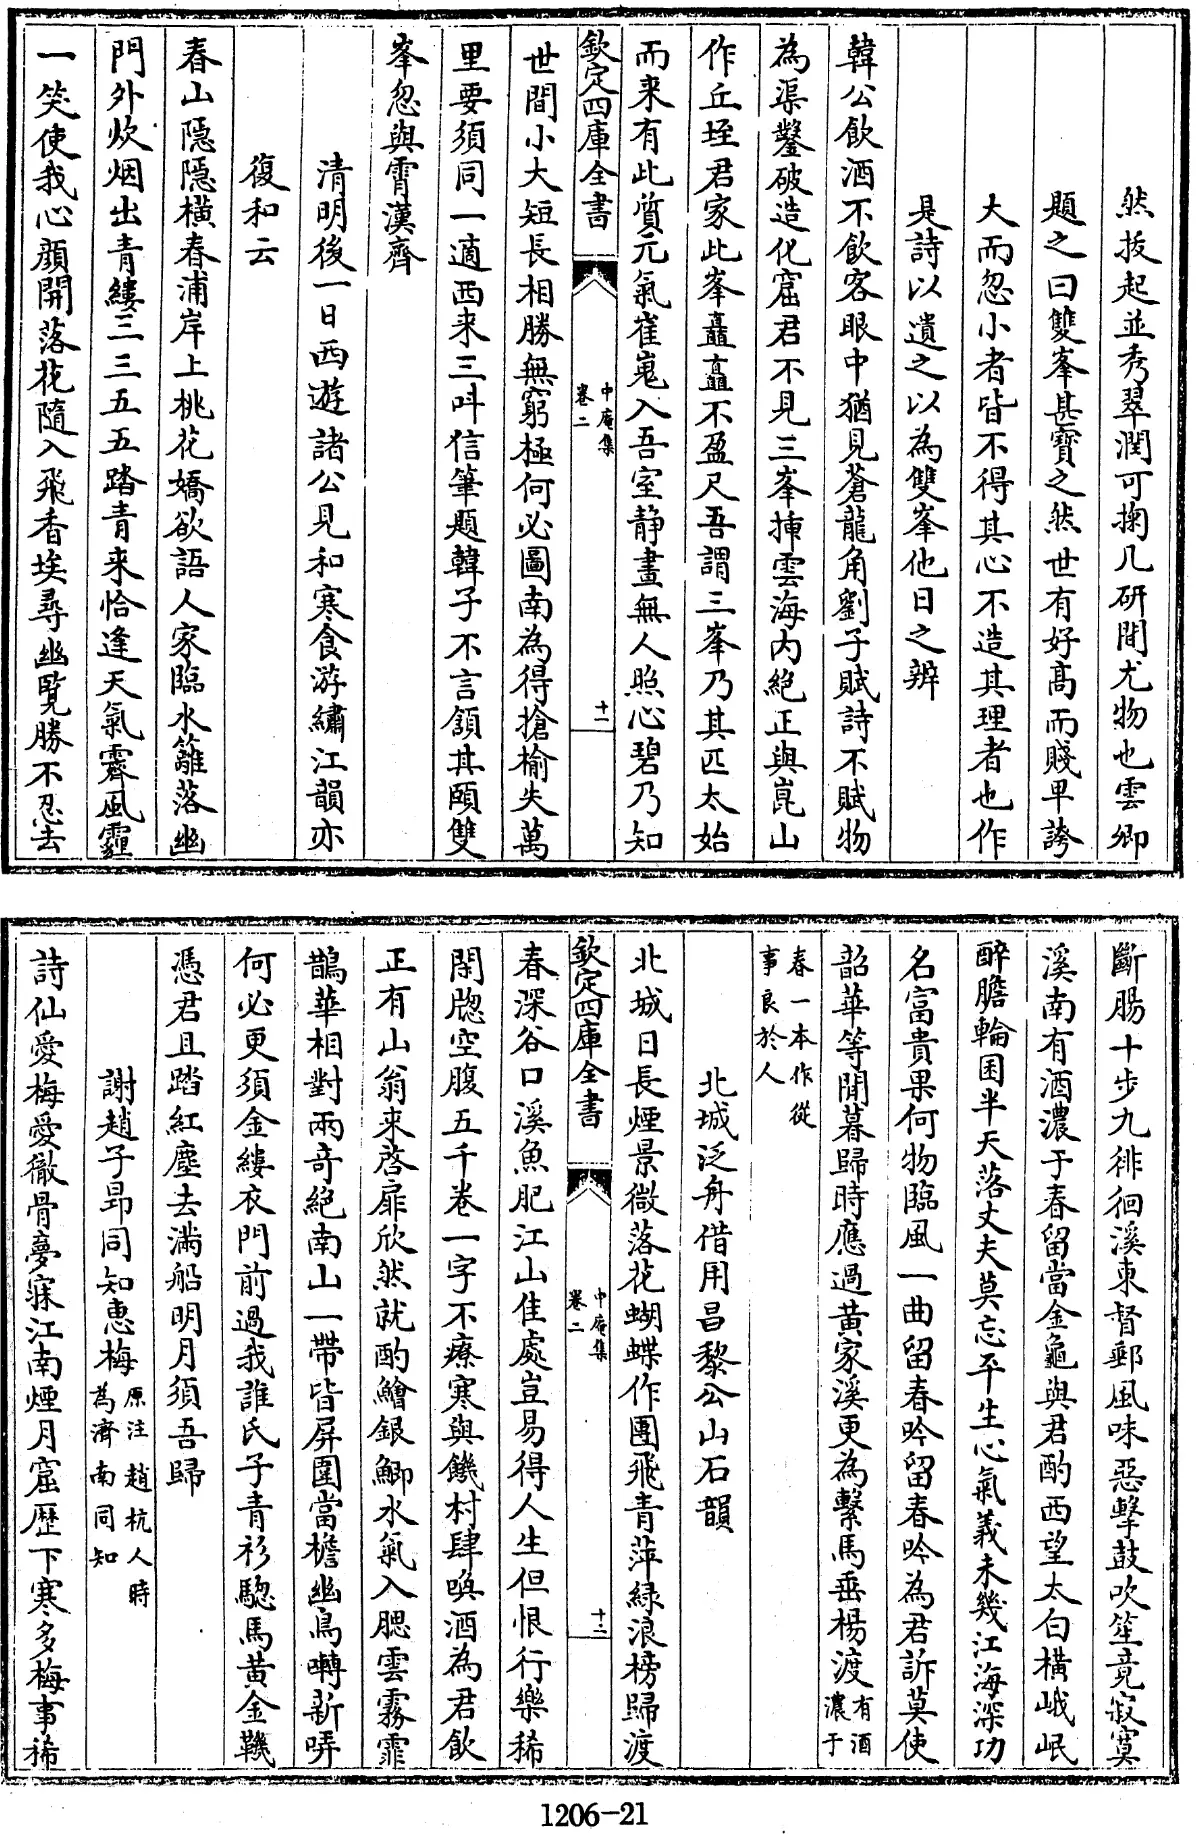 然拔起並秀翠潤可掬几研間尤物也雲卿
題之曰雙峯甚寶之然世有好髙而賤卑誇
大而忽小者皆不得其心不造其理者也作
是詩以遺之以為雙峯他日之辨
韓公飲酒不飲客眼中猶見蒼龍角劉子賦詩不賦物
為渠鑿破造化窟君不見三峯揷雲海内絶正與崑山
作丘垤君家此峯矗矗不盈尺吾謂三峯乃其匹太始
而来有此質元氣崔嵬入吾室静晝無人照心碧乃知
欽定四庫全書
中庵集
卷二
十一
世間小大短長相勝無窮極何必圖南為得搶榆失萬
里要須同一適西来三呌信筆題韓子不言頷其頤雙
峯忽與霄漢齊
清明後一日西遊諸公見和寒食游繡江韻亦
復和云
春山隠隠横春浦岸上桃花嬌欲語人家臨水籬落幽
門外炊烟出青縷三三五五踏青来恰逢天氣霽風霾
一笑使我心顔開落花隨入飛香埃尋幽覽勝不忍去
斷腸十步九徘徊溪東督郵風味惡擊鼓吹笙竟寂寞
溪南有酒濃于春留當金龜與君酌西望太白横峨岷
醉膽輪囷半天落丈夫莫忘平生心氣義未幾江海深功
名富貴果何物臨風一曲留春吟留春吟為君訴莫使
韶華等閒暮歸時應過黄家溪更為繫馬垂楊渡有酒
濃于
春一本作從
事良於人
北城泛舟借用昌黎公山石韻
北城日長煙景微落花蝴蝶作團飛青萍緑浪榜歸渡
欽定四庫全書
中庵集
卷二
十二
春深谷口溪魚肥江山佳處豈易得人生但恨行樂稀
閑牕空腹五千卷一字不療寒與饑村肆喚酒為君飲
正有山翁来啓扉欣然就酌鱠銀鯽水氣入腮雲霧霏
鵲華相對兩奇絶南山一帶皆屏圍當檐幽鳥囀新哢
何必更須金縷衣門前過我誰氏子青衫驄馬黄金鞿
憑君且踏紅塵去滿船明月須吾歸
謝趙子昂同知惠梅原注趙杭人時
為濟南同知
詩仙愛梅愛徹骨夢寐江南煙月窟歴下寒多梅事稀
1206-21